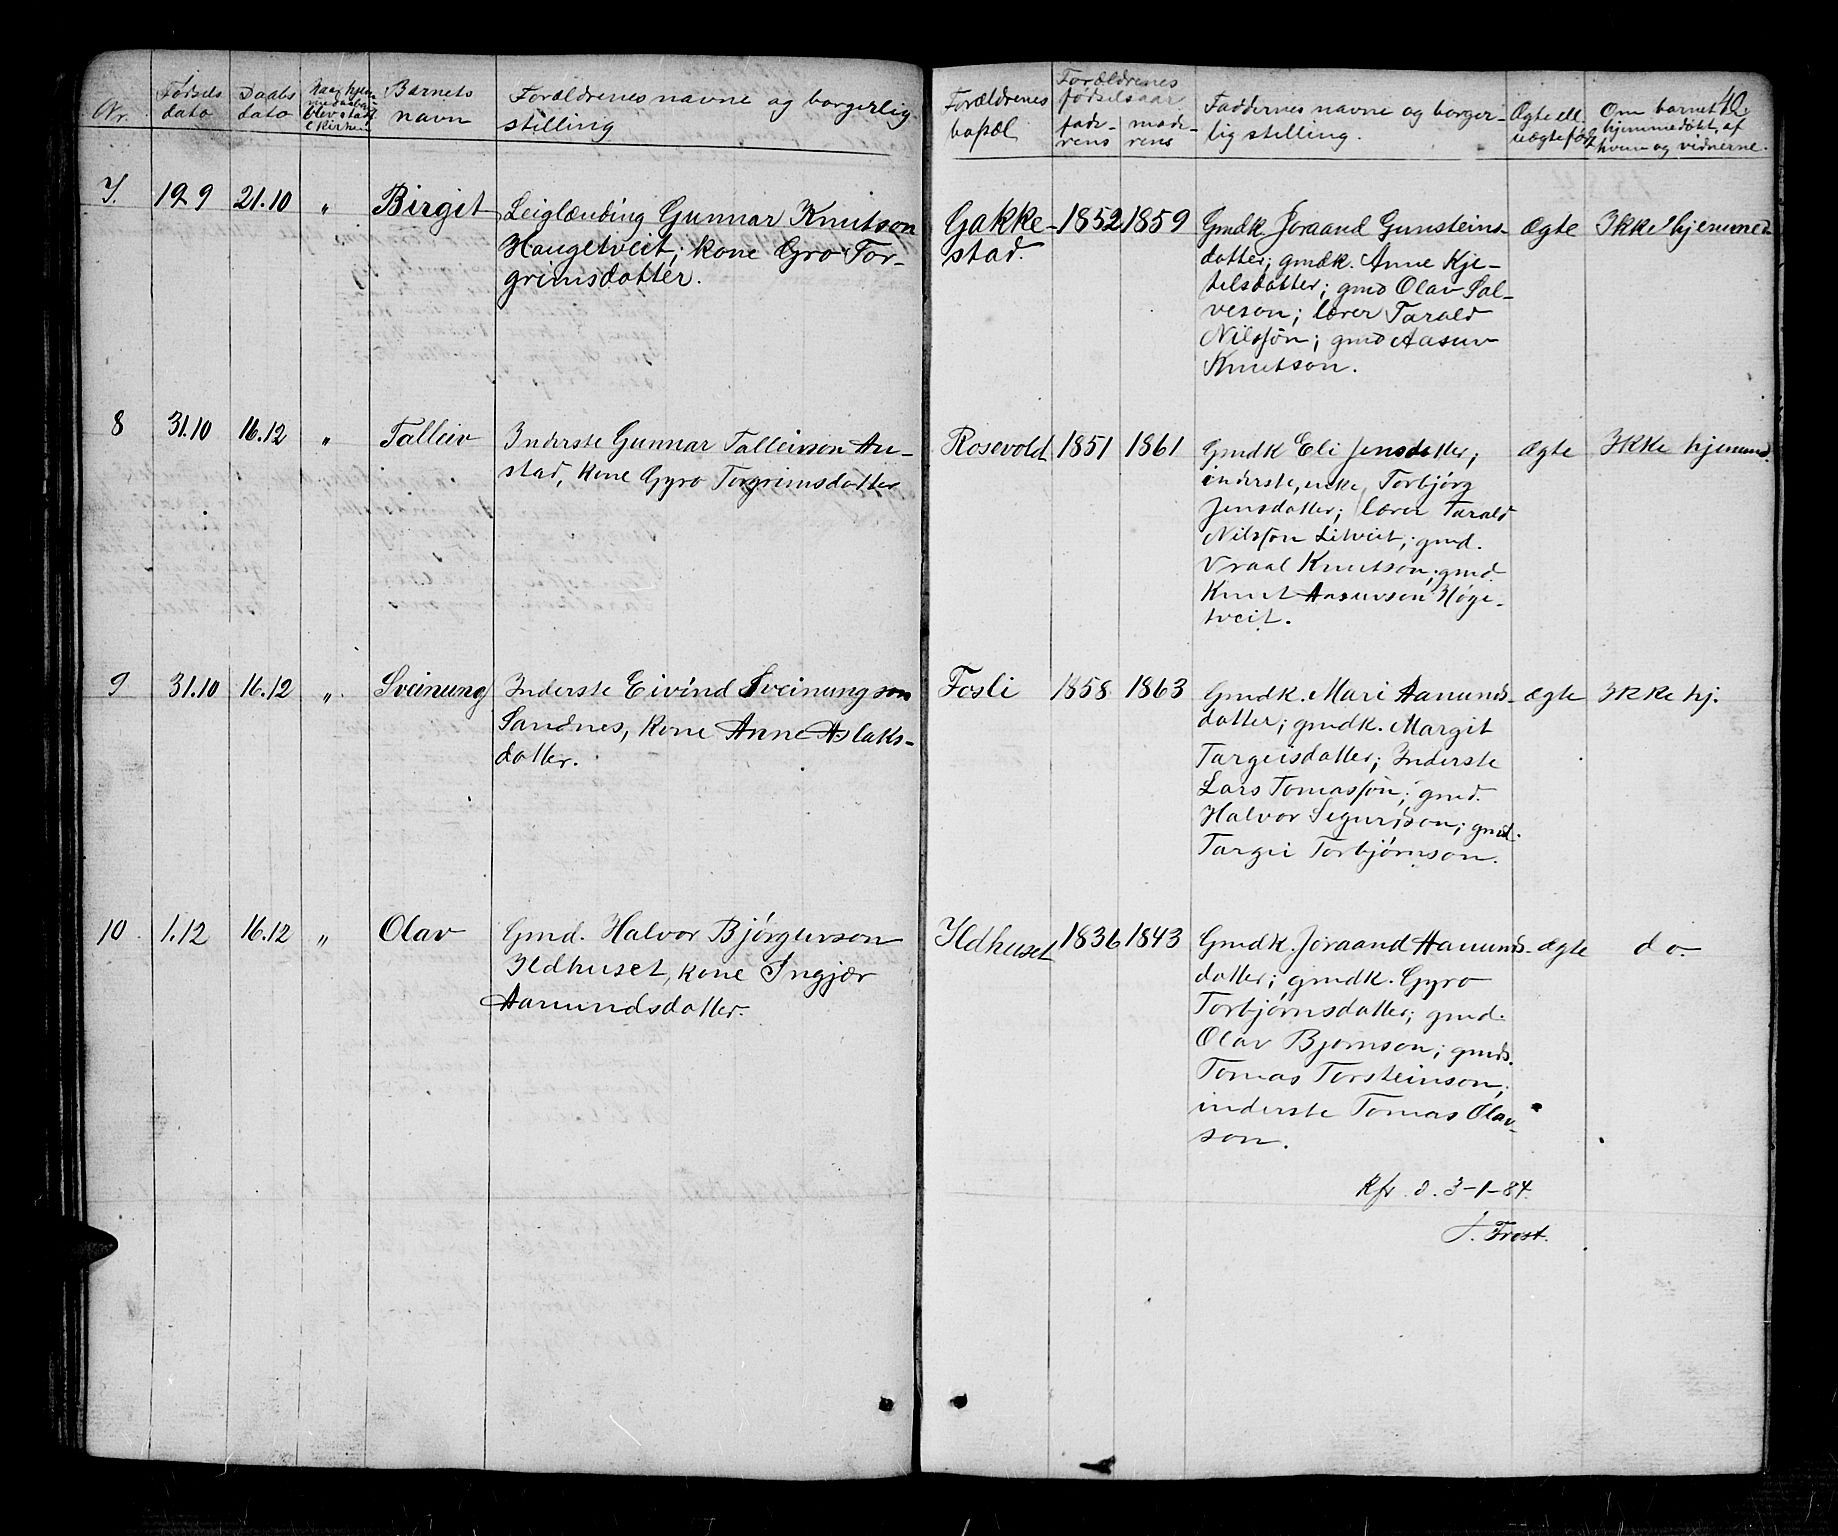 40.
Nr.
Fødsels
dato
Daabs
dato
Barnets
navn
Forældrenes navne og borgerlig
stilling
Forældrenes
bopæl
Forældrenes
fødselsaar
fade-
rens
mode-
rens
Faddernes navne og borger-
lig stilling.
Ægte ell.
uægte født
Om barnet er
hjemmedøbt, af
hvem og vidnerne.
7. 19 9 21.10 " Birgit Leiglænding Gunnar Knutson
Haugetveit; kone Gyro Tor-
grimsdatter.
Gakke-
stad.
1852 1859
Gmdk. Joraand Gunsteins-
datter; gmdk. Anne Kje-
telsdatter; gmd Olav Sal-
veson; lærer Tarald
Nilssøn; gmd Aasuv
Knutson.
ægte Ikke hjemmed
8 31.10 16.12 " Talleiv Inderste Gunnar Talleivson Au-
stad, kone Gyro Torgrimsdatter
Rosevold 1851 1861
Gmdk Eli Jensdatter;
inderste, enke, Torbjørg
Jensdatter; lærer Tarald
Nilssøn Litveit; gmd.
Vraal Knutson; gmd.
Knut Aasuvson Høge-
tveit.
ægte Ikke hjemmd.
9 31.10 16.12 " Sveinung Inderste Eivind Sveinungson
Sandnes, kone Anne Aslaks-
datter.
Fosli 1858 1863
Gmdk. Mari Aamunds-
datter; gmdk. Margit
Targeisdatter; Inderste
Lars Tomassøn; gmd.
Halvor Sigurdson; gmd.
Targei Torbjørnson.
ægte Ikke hj.
10. 1.12 16.12 " Olav Gmd. Halvor Bjørgulvson
Ildhuset, kone Ingjær
Aamundsdatter.
Ildhuset 1836 1843
Gmdk. Joraand Aamunds-
datter; gmdk. Gyro
Torbjørnsdatter; gmd.
Olav Bjørnson; gmds.
Tomas Torsteinson;
inderste Tomas Olav-
son.
ægte do.
Kfr. d. 3-1-84.
J. Frost.